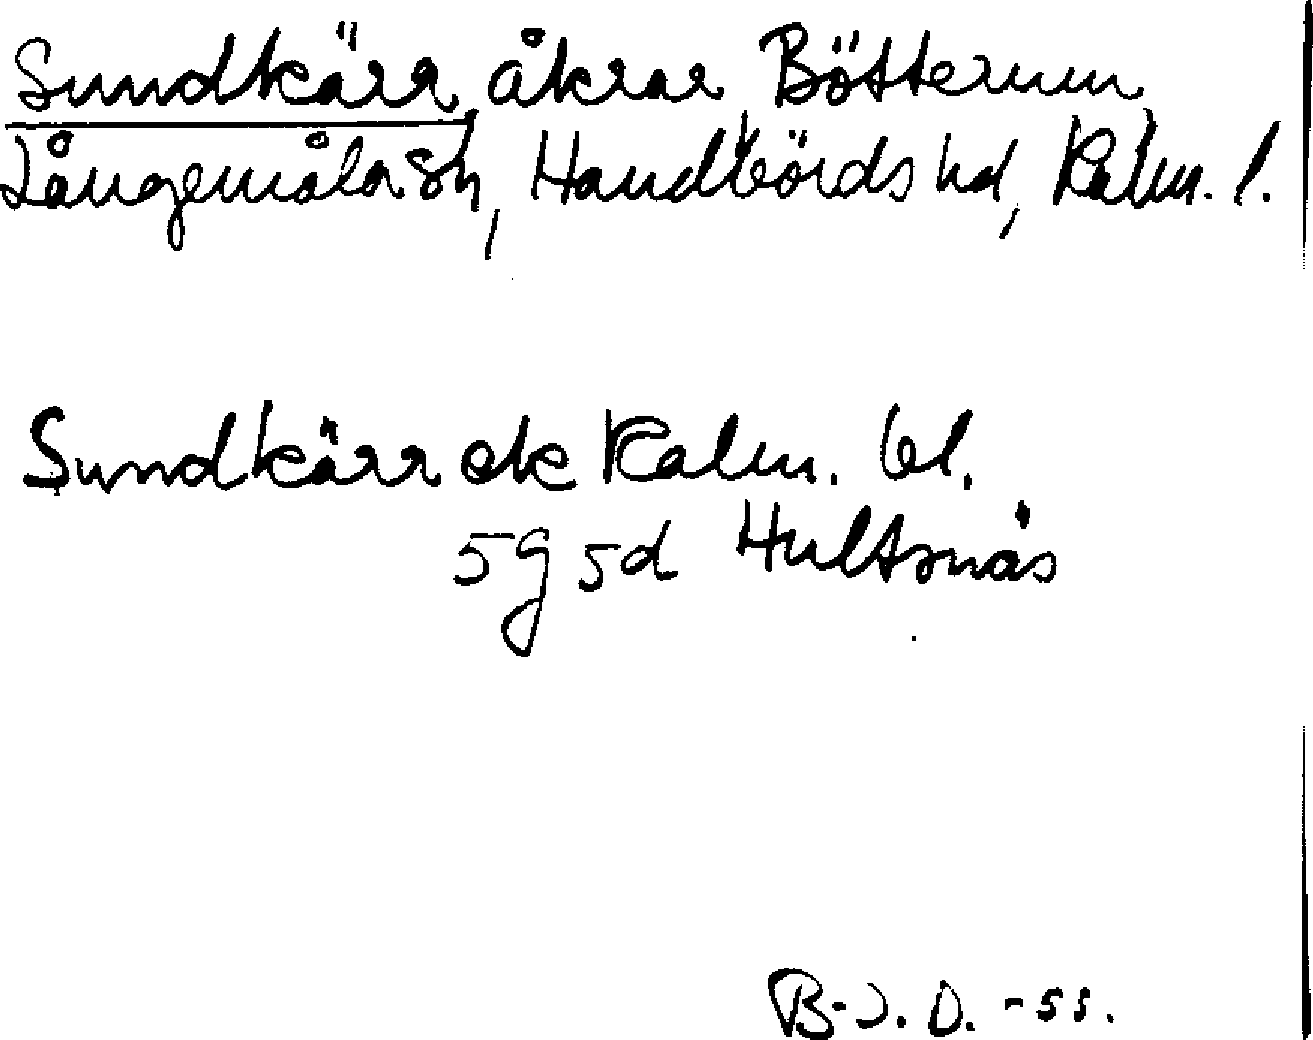 Sundkärr, åkrar, Bötterum,
Långemåla sn, Handbörds hd, Kalm. l.
Sundkärr ek Kalm. bl.
5g5d Hultsnäs
B-J. D. -55.